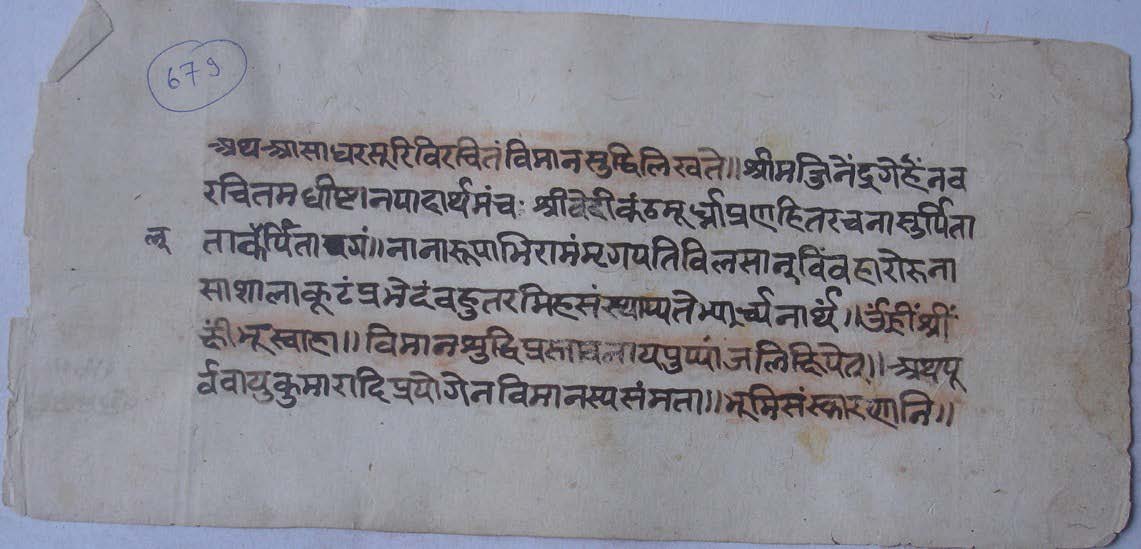 679
अथ आसाधरसूरिविरचितं विमानसुद्धि लिखते ॥ श्रीमज्जिनेंद्रगेहेंनव
रचितमधीष्टानपादार्थमंचः श्रीवेदीकंठमूर्ध्नाप्रणहितरचनासुर्पिता
लू
नानारूपाभिरामंमृगपतिविलसानूविंवहारोरुना
साशालाकूटंप्रभेदंवहुतरमिहसंस्थाप्यते
स्वाहा ॥ विमानशुद्धिप्रस्तावनायपुष्पांजलिंक्षिपेत् ॥ अथपू
र्ववायुकुमारादिप्रयोगेनविमानस्यसंमता ॥ भूमिसंस्कारणानि ॥